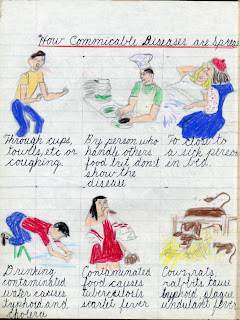 How Commicable Diseases are Spread
Through cups,
towls, etc or
coughing.
By person who
handle others
food but don't
show the
disease
To close to
a sick person
in bed.
Drinking
contaminated
water causes
typhoid and
cholera
Contaminated
food causes
tuberculoris
scarlet fever
Cows, rats,
rabbits cause
typhoid, plague
undulant fever